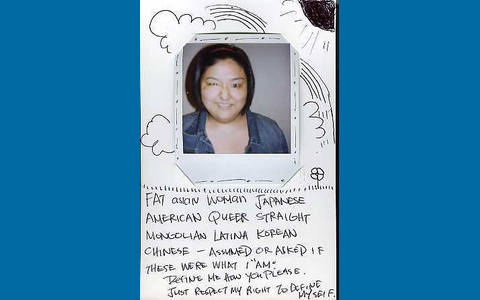 FAT asian woman JAPANESE
AMERICAN QUEER STRAIGHT
MONGOLIAN LATINA KOREAN
CHINESE – ASSUMED OR ASKED IF
THESE WERE WHAT I "AM."
DEFINE ME HOW YOU PLEASE.
JUST RESPECT MY RIGHT TO DEFINE
MYSELF.